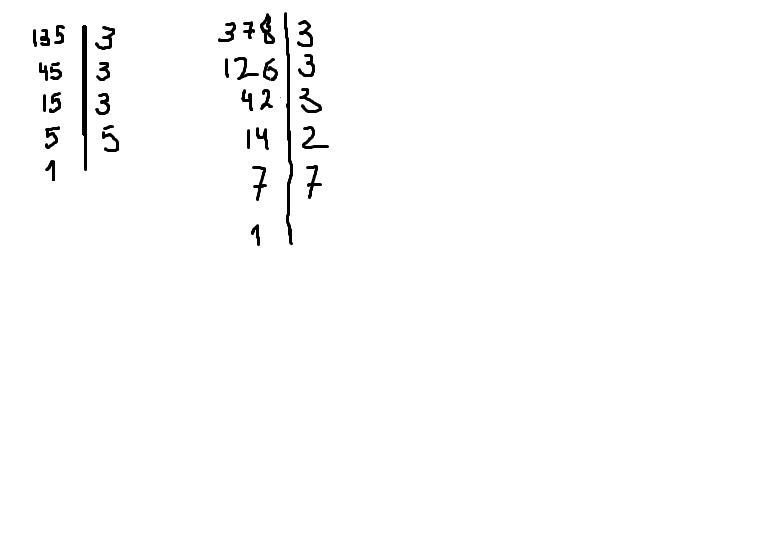 135 | 3
45 | 3
15 | 3
5 | 5
1 |
378 | 3
126 | 3
42 | 3
14 | 2
7 | 7
1 |